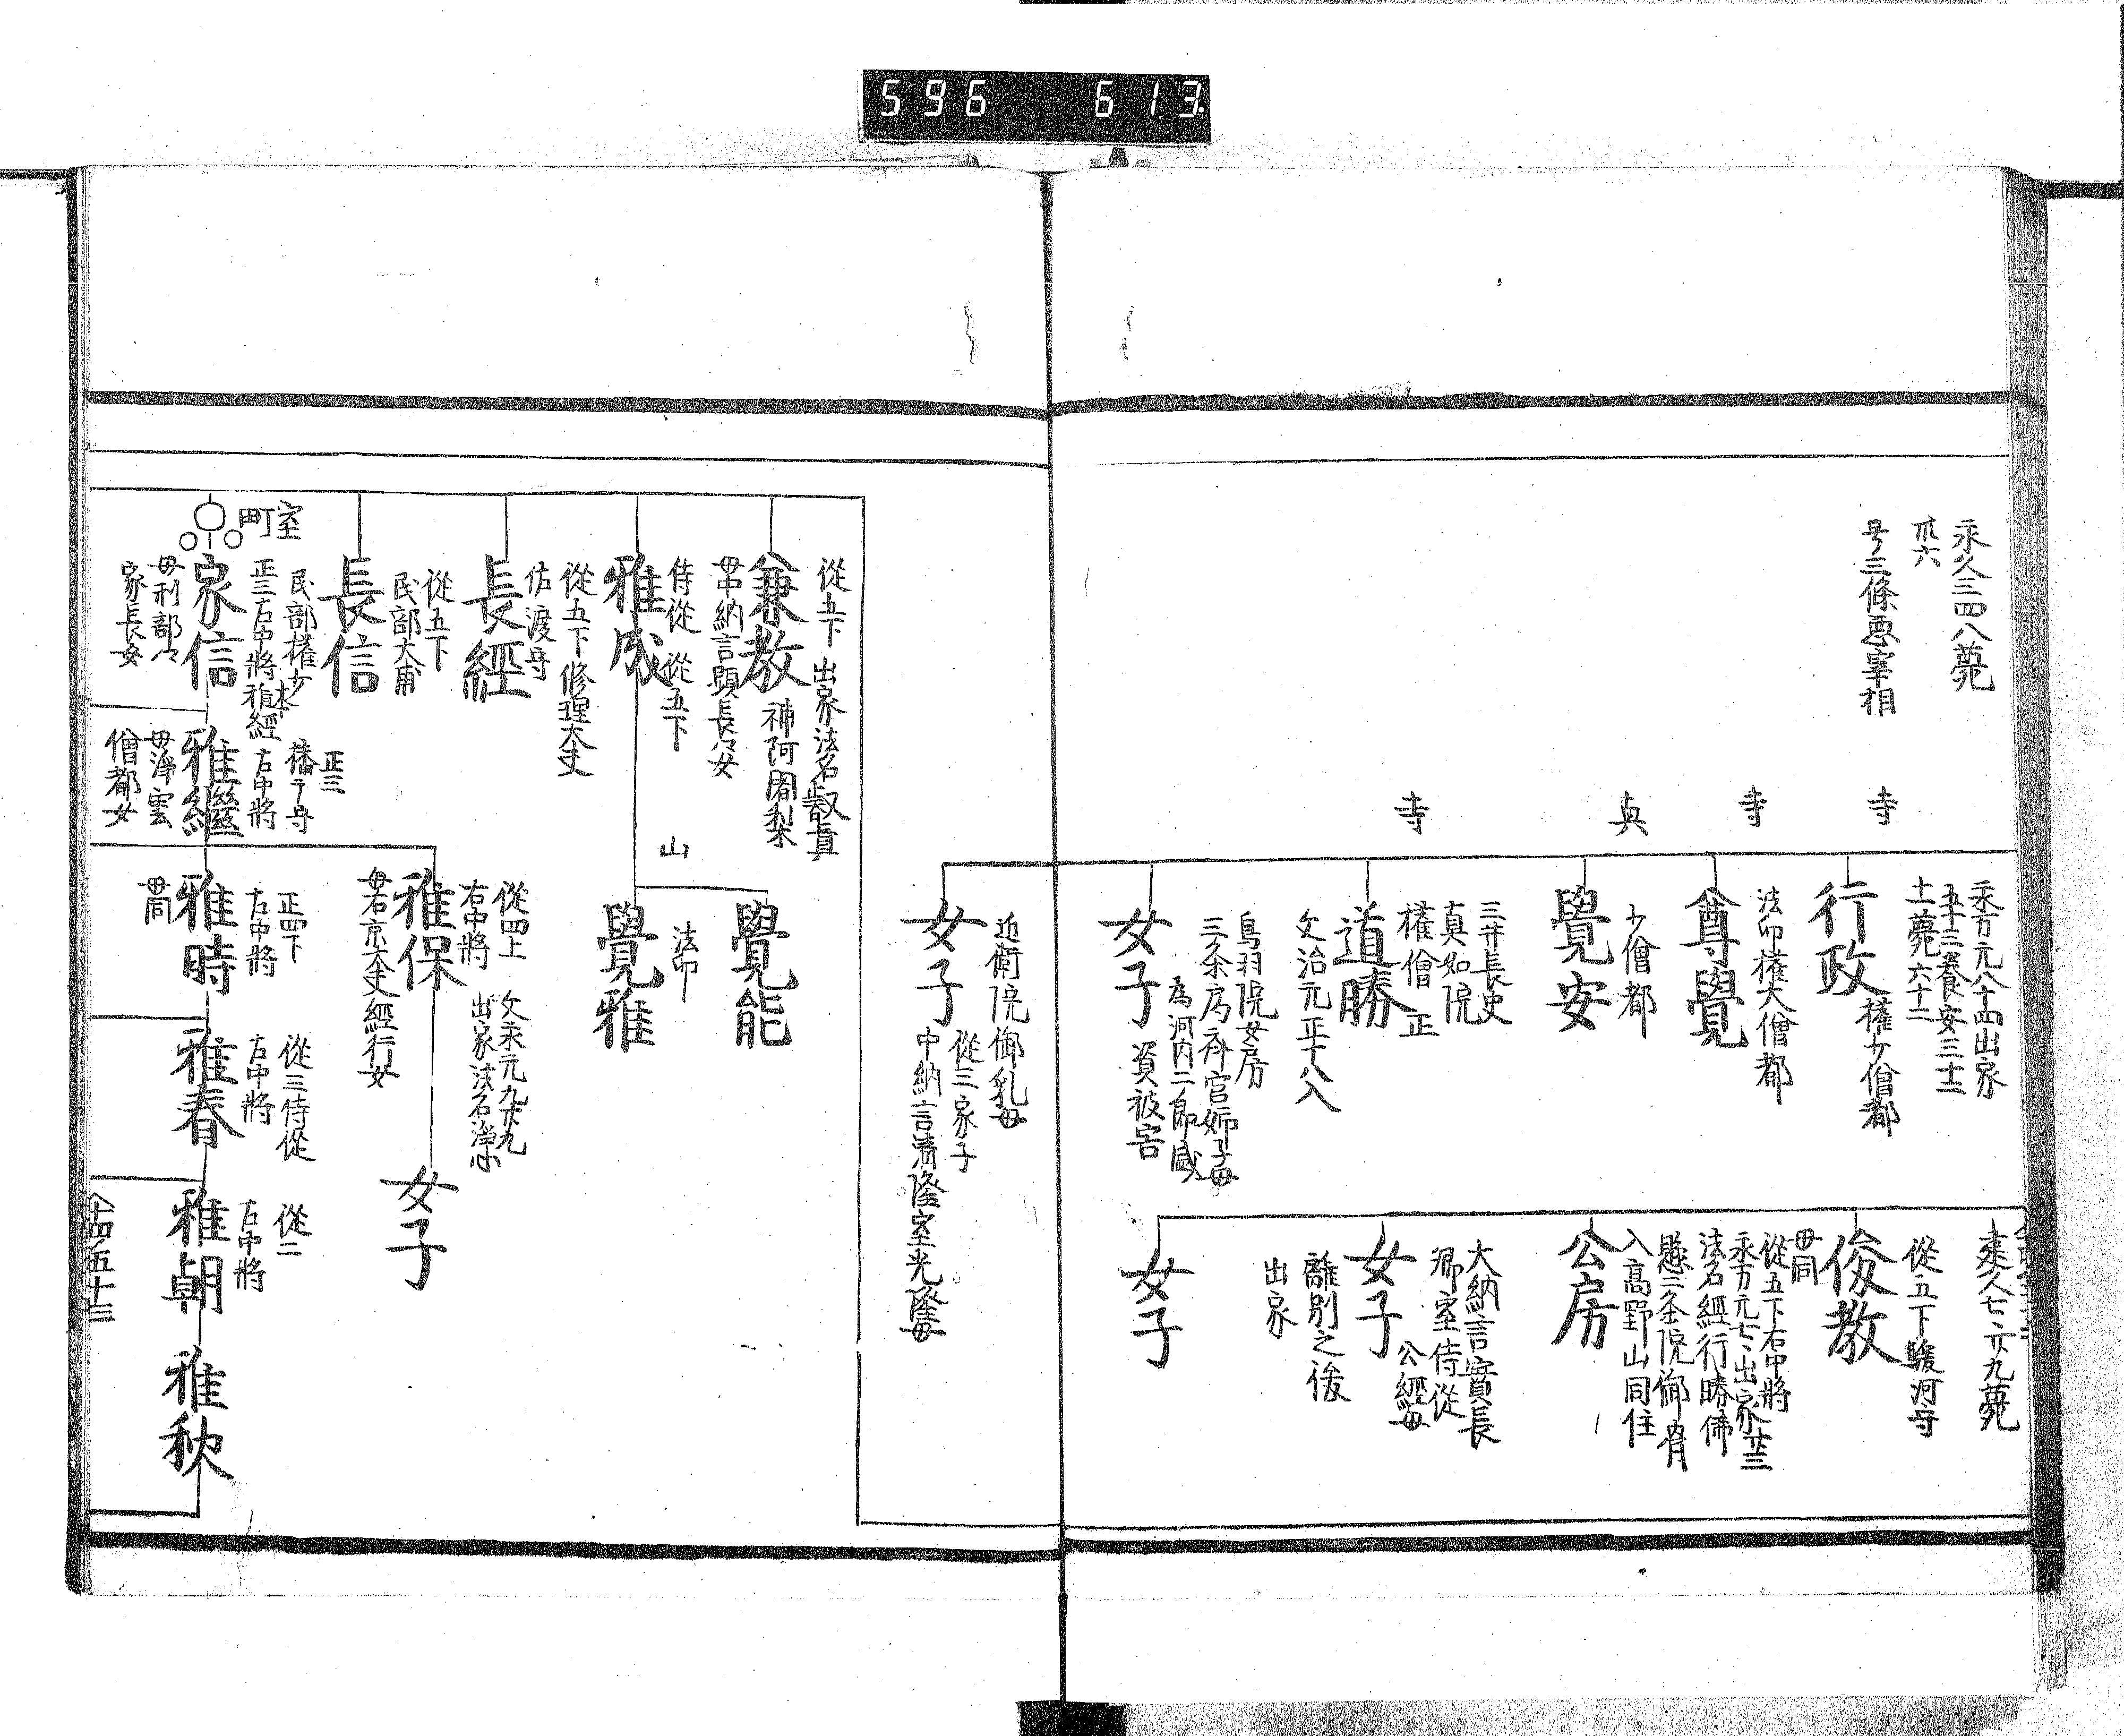 596 613
永久三四八薨
卅六
号三條悪宰相
寺
寺
與
寺
行政
権少僧都
永万元八十四出家
土薨六十二
尊覺
法印権大僧都
覺安
少僧都
道勝
三井長吏
真如院
権僧正
文治元正十八入
女子
鳥羽院女房
三条房斎宮姉子母
為河内二郎盛
資被害
女子
近衛院御乳母
従三家子
中納言清隆室光隆母
建久七六九薨
俊教
従五下駿河守
母同
公房
従五下右中将
永万元七、出家廿三
法名經行勝佛
懸二条院御骨
入高野山同住
女子
大納言實長
卿室侍從
公經母
離別之後
出家
女子
兼教
從五下出家法名叡真
補阿闍梨
母中納言顕長女
雅成
侍從從五下
山
覺能
覺雅
法印
長經
從五下修理大夫
佐渡守
長信
從五下
民部大甫
室町
家信
民部権少
正三右中將
本雅經
母刑部々
家長女
雅繼
正三
播广守
右中將
母淨雲
僧都女
雅保
從四上
右中將
文永元九廿九
出家法名淨心
母右京大夫經行女
女子
雅時
正四下
右中將
母同
雅春
從三侍從
右中將
雅朝
從二
右中將
雅秋